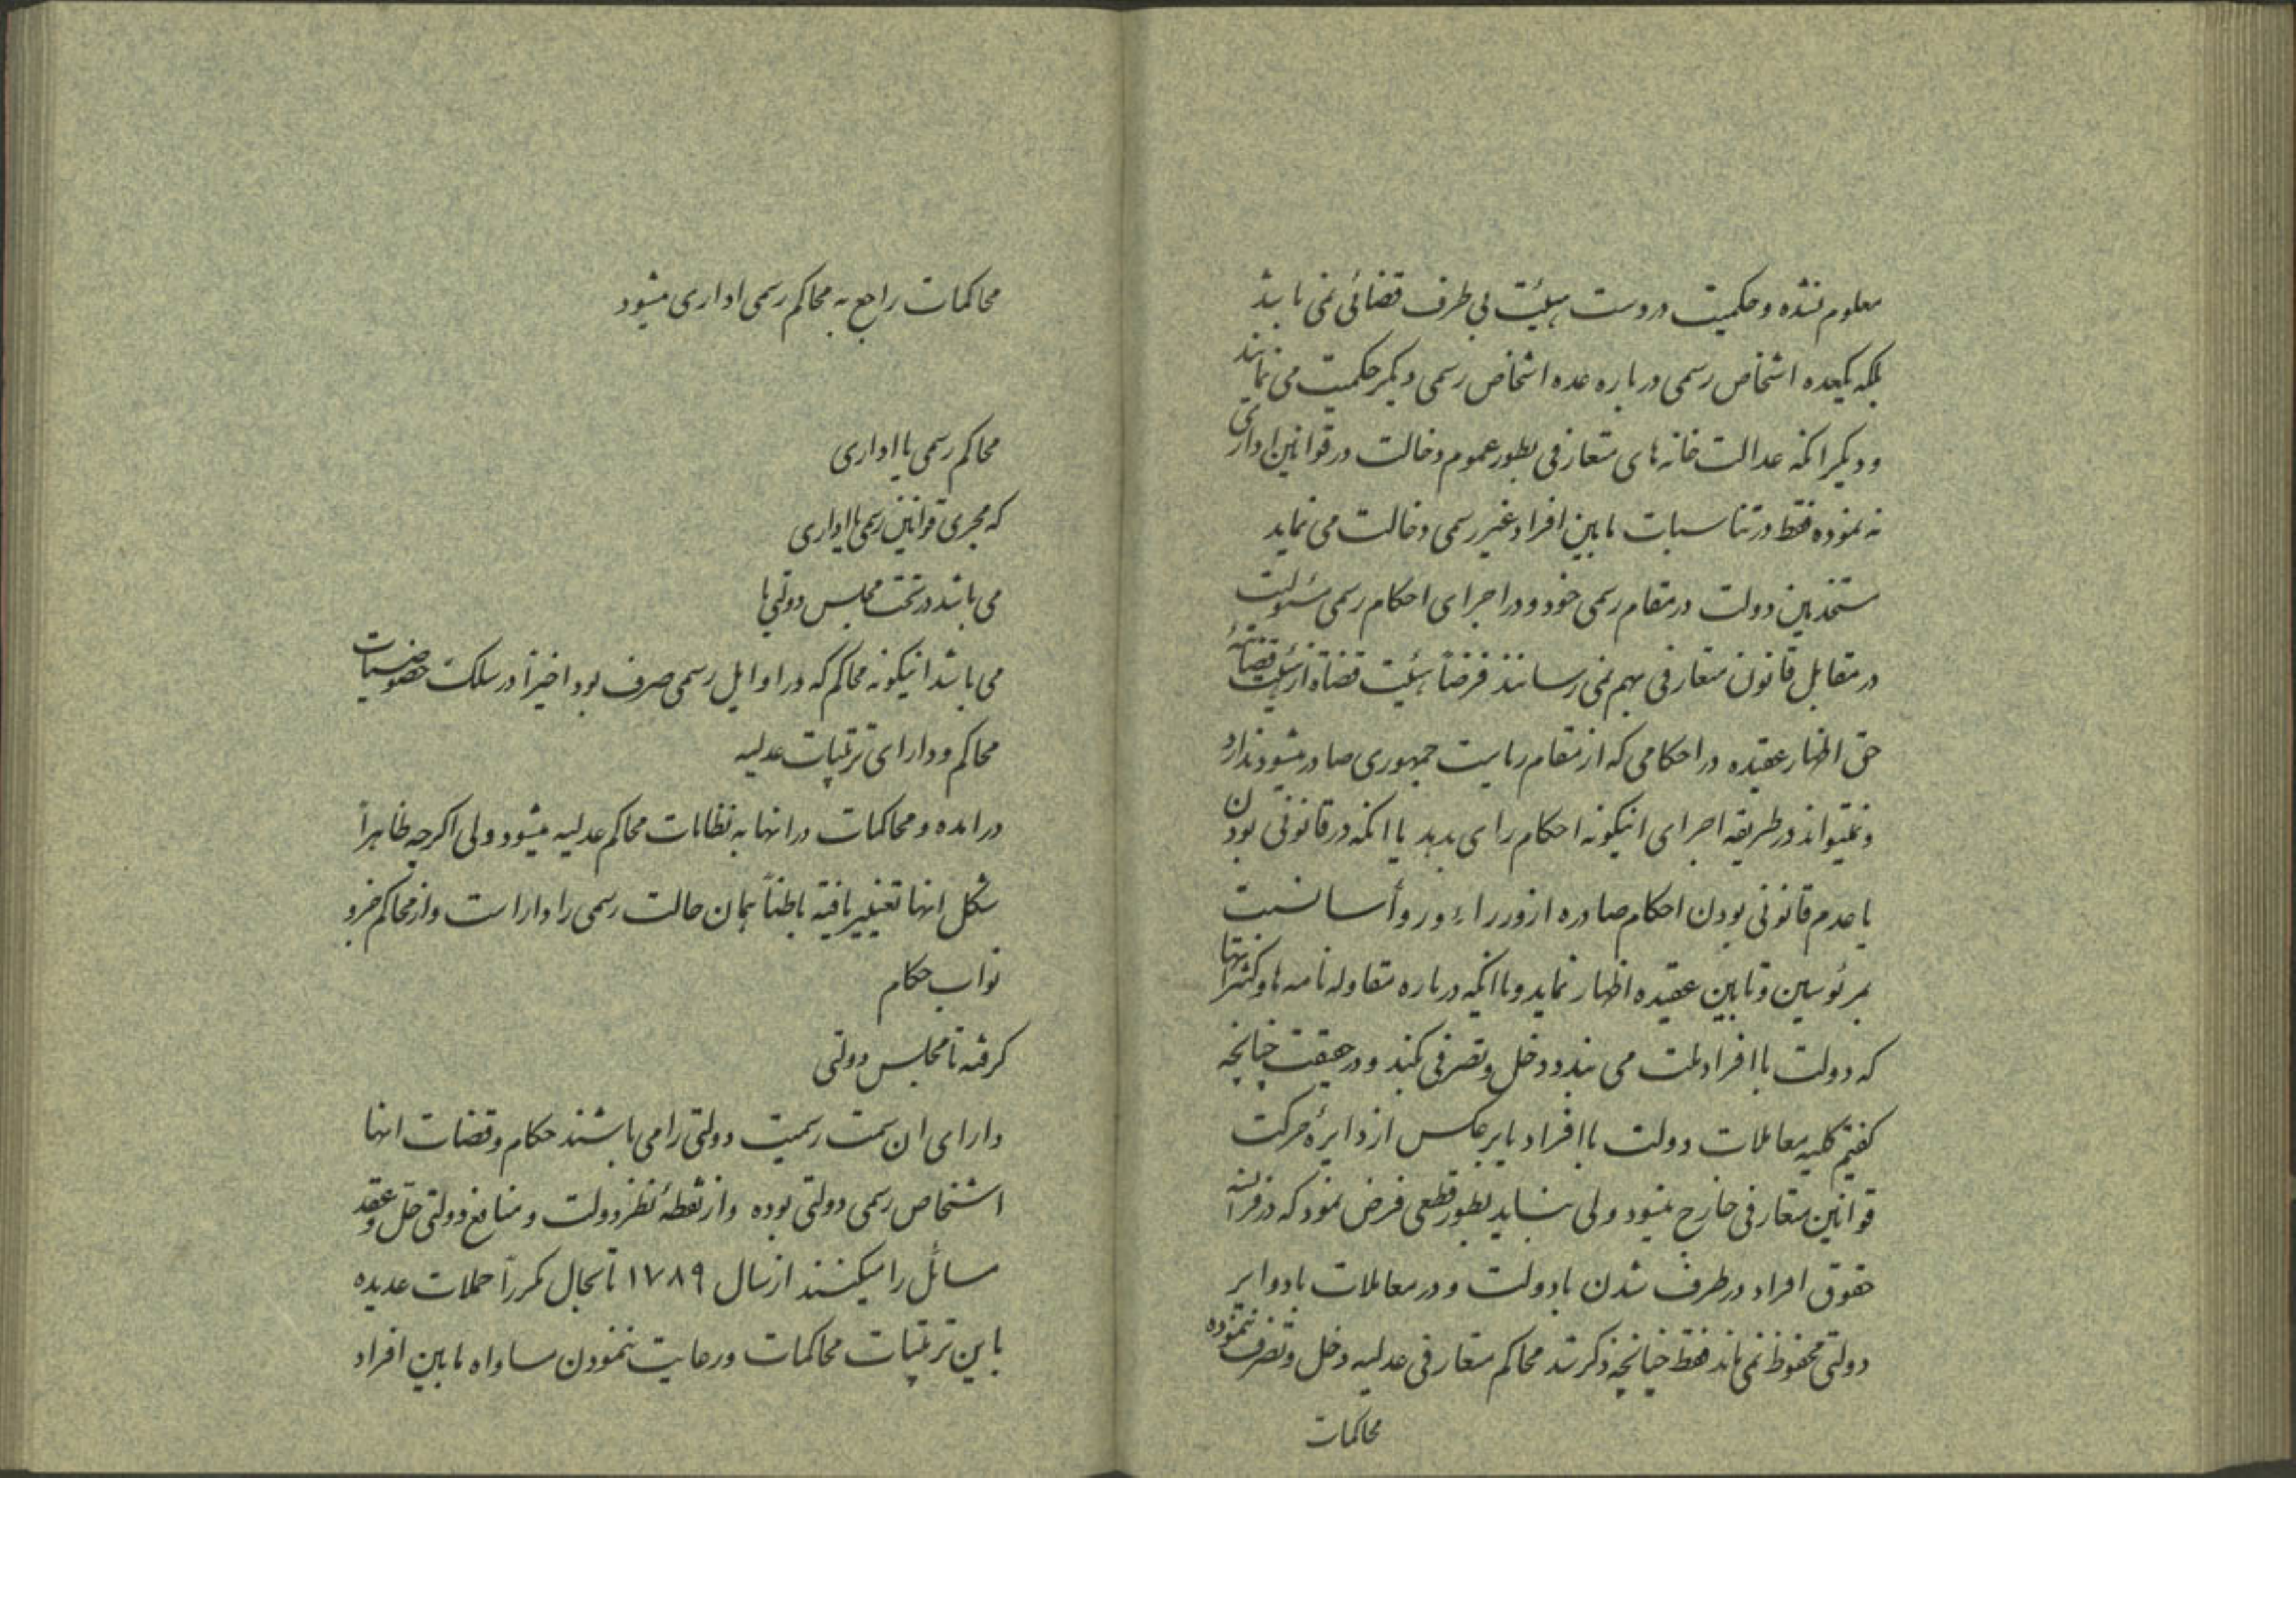 معلوم نشده و حکمیت در دست هیئت بی طرف قضائی نمی باشد
بلکه یکعده اشخاص رسمی در باره عده اشخاص رسمی دیگر حکمیت می نمایند
و دیگر انکه عدالت خانه های متعارفی بطور عموم دخالت در قوانین اداری
نه نموده فقط در تناسبات مابین افراد غیر رسمی دخالت می نماید
مستخدمین دولت در مقام رسمی خود و در اجرای احکام رسمی مسئولیت
در مقابل قانون متعارفی بهم نمی رسانند فرضاً هیئت قضاة از هیئت قضاتیه
حق اظهار عقیده در احکامی که از مقام ریاست جمهوری صادر میشود ندارد
و نمیتواند در طریقه اجرای اینگونه احکام رای بدهد یا انکه در قانونی بودن
یا عدم قانونی بودن احکام صادره از وزراء و روأسا نسبت
بمرئوسین و تابین عقیده اظهار نماید و یا انکه در باره مقاوله نامه ها و کنتراتها
که دولت با افراد ملت می بندد دخل و تصرفی کند و در حقیقت چنانچه
گفتیم کلیه معاملات دولت با افراد یا برعکس از دایرهٔ حرکت
قوانین متعارفی خارج میشود ولی نباید بطور قطعی فرض نمود که در فرانسه
حقوق افراد در طرف شدن با دولت و در معاملات با دوایر
دولتی محفوظ نمی ماند فقط چنانچه ذکر شد محاکم متعارفی عدلیه دخل و تصرف ننموده
محاکمات
محاکمات راجع به محاکم رسمی اداری میشود
محاکم رسمی یا اداری
که مجری قوانین رسمی یا اداری
می باشد در تحت مجلس دولتی ها
می باشد اینگونه محاکم که در اوایل رسمی صرف بود اخیراً در سلک خصوصیات
محاکم و دارای ترتیبات عدلیه
در امده و محاکمات در انها به نظامات محاکم عدلیه میشود ولی اگرچه ظاهراً
شکل انها تغییر یافته باطناً همان حالت رسمی را داراست و از محاکم جزو
نواب حکام
گرفته تا مجلس دولتی
دارای ان سمت رسمیت دولتی را می باشند حکام و قضات انها
اشخاص رسمی دولتی بوده و از نقطهٔ نظر دولت و منافع دولتی حل و عقد
مسائل را میکنند از سال ۱۷۸۹ تا بحال مکرراً حملات عدیده
باین ترتیبات محاکمات و رعایت ننمودن مساواة مابین افراد